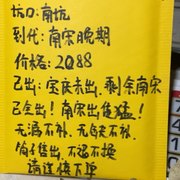 坑口:南坑
到代:南宋晚期
价格:2088
已出:宝庆未出,剩余南宋
已全出!南宋出货猛!
无漏不补、无缺不补
售出,不退不换
请谨慎下单